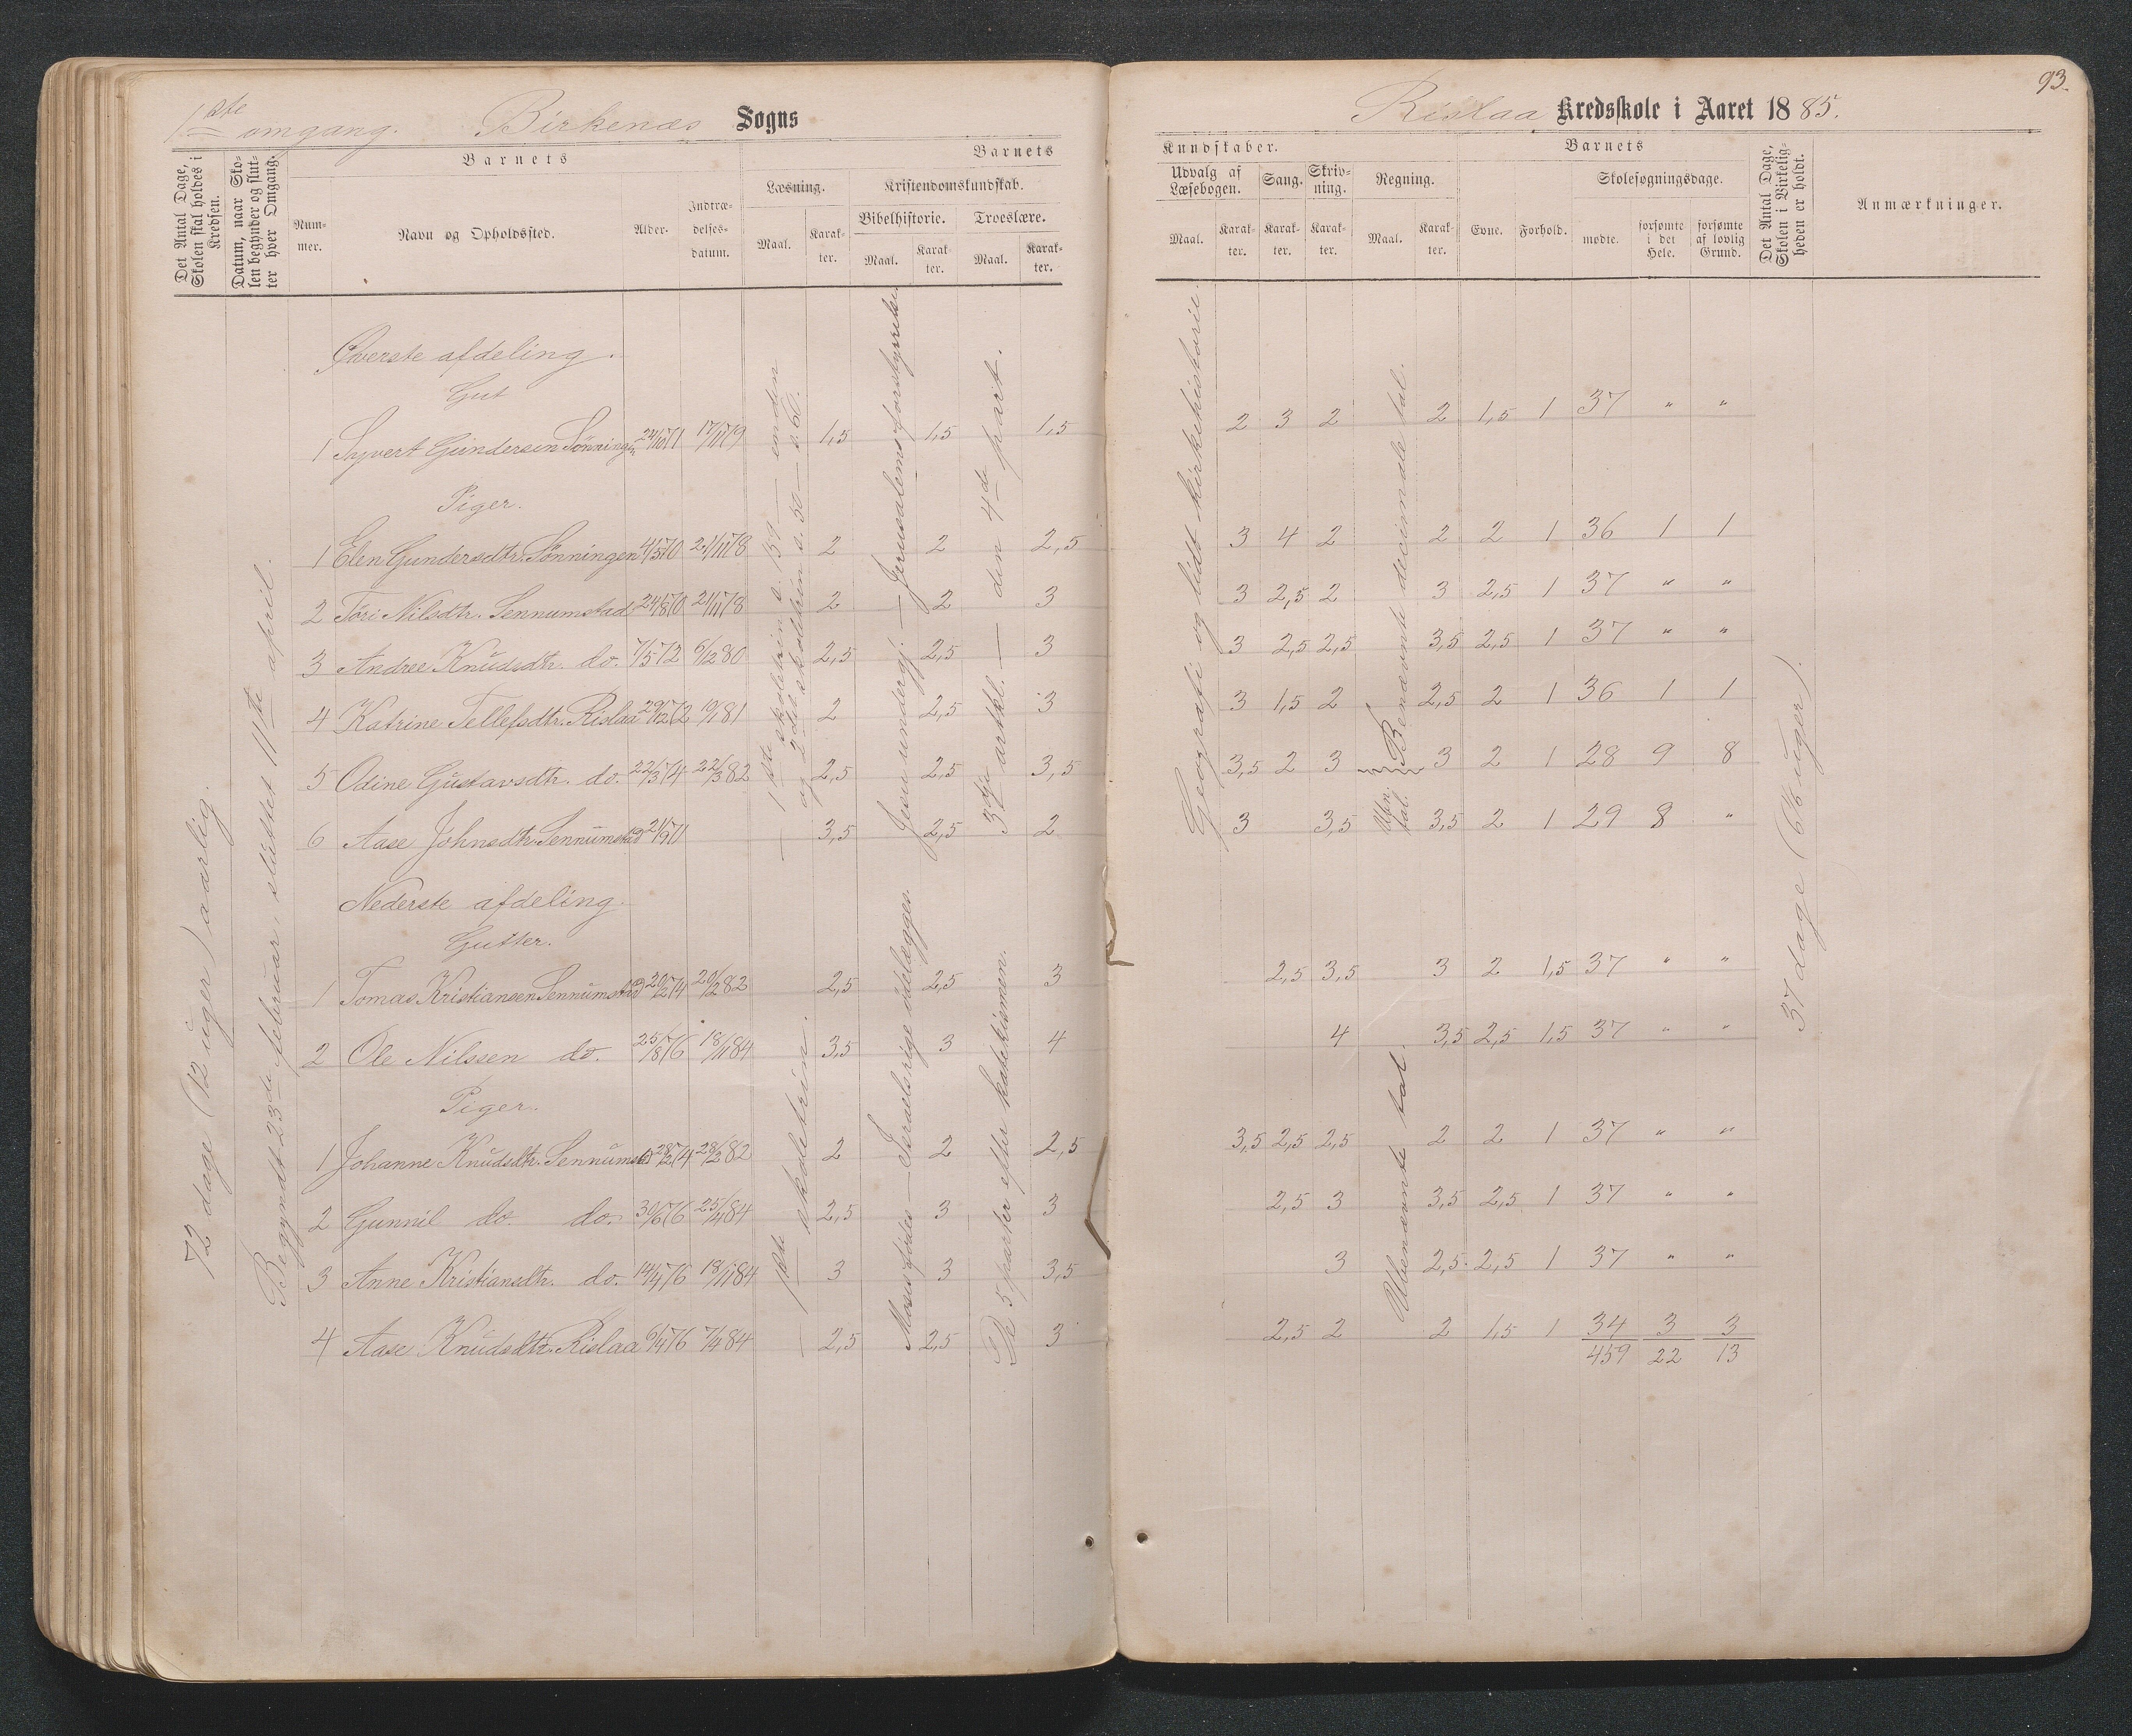 1ste omgang. Birkenæs Sogns
Det Antal Dage, Skolen skal holdes i Kredsen.
Datum, naar Skolen begynder og slutter hver Omgang.
Barnets
Nummer.
Navn og Opholdssted.
Alder.
Indtrædelsesdatum.
Barnets
Læsning.
Maal.
Karakter.
Kristendomskundskab.
Bibelhistorie.
Maal.
Karakter.
Troeslære.
Maal.
Karakter.
72 dage (12 uger) aarlig.
Begyndt 23de februar, sluttet 11te april.
Øverste afdeling.
Gut
1 Syvert Gundersen Sønningen 24/10 71 17/11 79 1,5 1,5 1,5
Piger.
1 Elen Gundersdtr. Sønningen 4/5 70 21/11 78 2 2 2,5
2 Töri Nilsdtr. Sennumstad 24/8 70 21/11 78 2 2 3
3 Andree Knudsdtr. do. 7/5 72 6/2 80 2,5 2,5 3
4 Katrine Tellefsdtr. Rislaa 29/12 72 19/1 81 2 2,5 3
5 Odine Gustavsdtr. do. 22/3 74 22/3 82 2,5 2,5 3,5
6 Aase Johnsdtr. Sennumstad 21/9 71 3,5 2,5 2
1ste skoletrin s. 159 — enden
og 2det skoletrin s. 50 — s. 60.
Jesu undergj. — Jerusalems forstyrrelse.
3dje artkl. — den 4de part.
Nederste afdeling.
Gutter.
1 Tomas Kristiansen Sennumstad 20/2 74 20/2 82 2,5 2,5 3
2 Ole Nilssen do. 25/8 76 18/11 84 3,5 3 4
Piger.
1 Johanne Knudsdtr. Sennumstad 28/2 74 28/2 82 2 2 2,5
2 Gunnil do. do. 30/6 76 25/4 84 2,5 3 3
3 Anne Kristiansdtr. do. 14/4 76 18/11 84 3 3 3,5
4 Aase Knudsdtr. Rislaa 6/4 76 7/4 84 2,5 2,5 3
1ste skoletrin.
Moses fødes — Israels rige ødelægges.
De 5 parter efter katekismen.
93.
Rislaa Kredsskole i Aaret 1885.
Kundskaber.
Udvalg af Læsebogen.
Maal.
Karakter.
Sang.
Karakter.
Skrivning.
Karakter.
Regning.
Maal.
Karakter.
Barnets
Evne.
Forhold.
Skolesøgningsdage.
mødte.
forsømte i det Hele.
forsømte af lovlig Grund.
Det Antal Dage, Skolen i Virkeligheden er holdt.
Anmærkninger.
Geografi og lidt kirkehistorie.
Benævnte decimale tal.
2 3 2 2 1,5 1 37 " "
3 4 2 2 2 1 36 1 1
3 2,5 2 3 2,5 1 37 " "
3 2,5 2,5 3,5 2,5 1 37 " "
3 1,5 2 2,5 2 1 36 1 1
3,5 2 3 3 2 1 28 9 8
3 3,5 Ubn. tal. 3,5 2 1 29 8 "
37 dage (6⅙ uger).
2,5 3,5 3 2 1,5 37 " "
4 3,5 2,5 1,5 37 " "
Ubenævnte tal.
3,5 2,5 2,5 2 2 1 37 " "
2,5 3 3,5 2,5 1 37 " "
3 2,5 2,5 1 37 " "
2,5 2 2 1,5 1 34 3 3
459 22 13